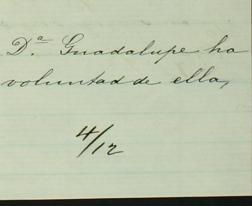 D.ª Guadalupe ha
voluntad de ella,
4/12